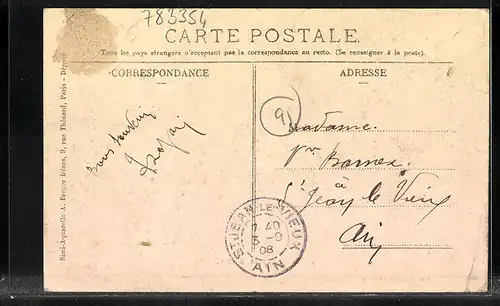 783354
CARTE POSTALE.
Tous les pays étrangers n'acceptent pas la correspondance au recto. (Se renseigner à la poste).
CORRESPONDANCE
ADRESSE
Simi-Aquarelle A. Breger frères, 9, rue Thénard, Paris - Déposé
Bons
91
Madame.
à
St Jean le Vieux
Ain
ST JEAN-LE-VIEUX
40
5 -9
08
AIN